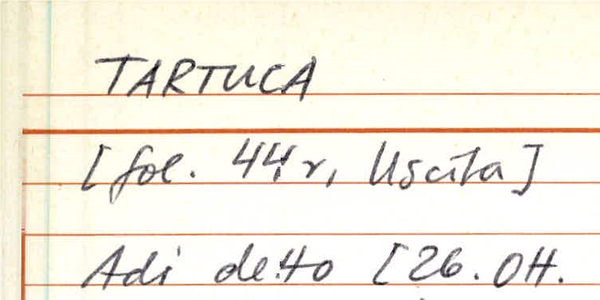 TARTUCA
[fol. 44r, Uscita]
Adi detto [26. Ott.